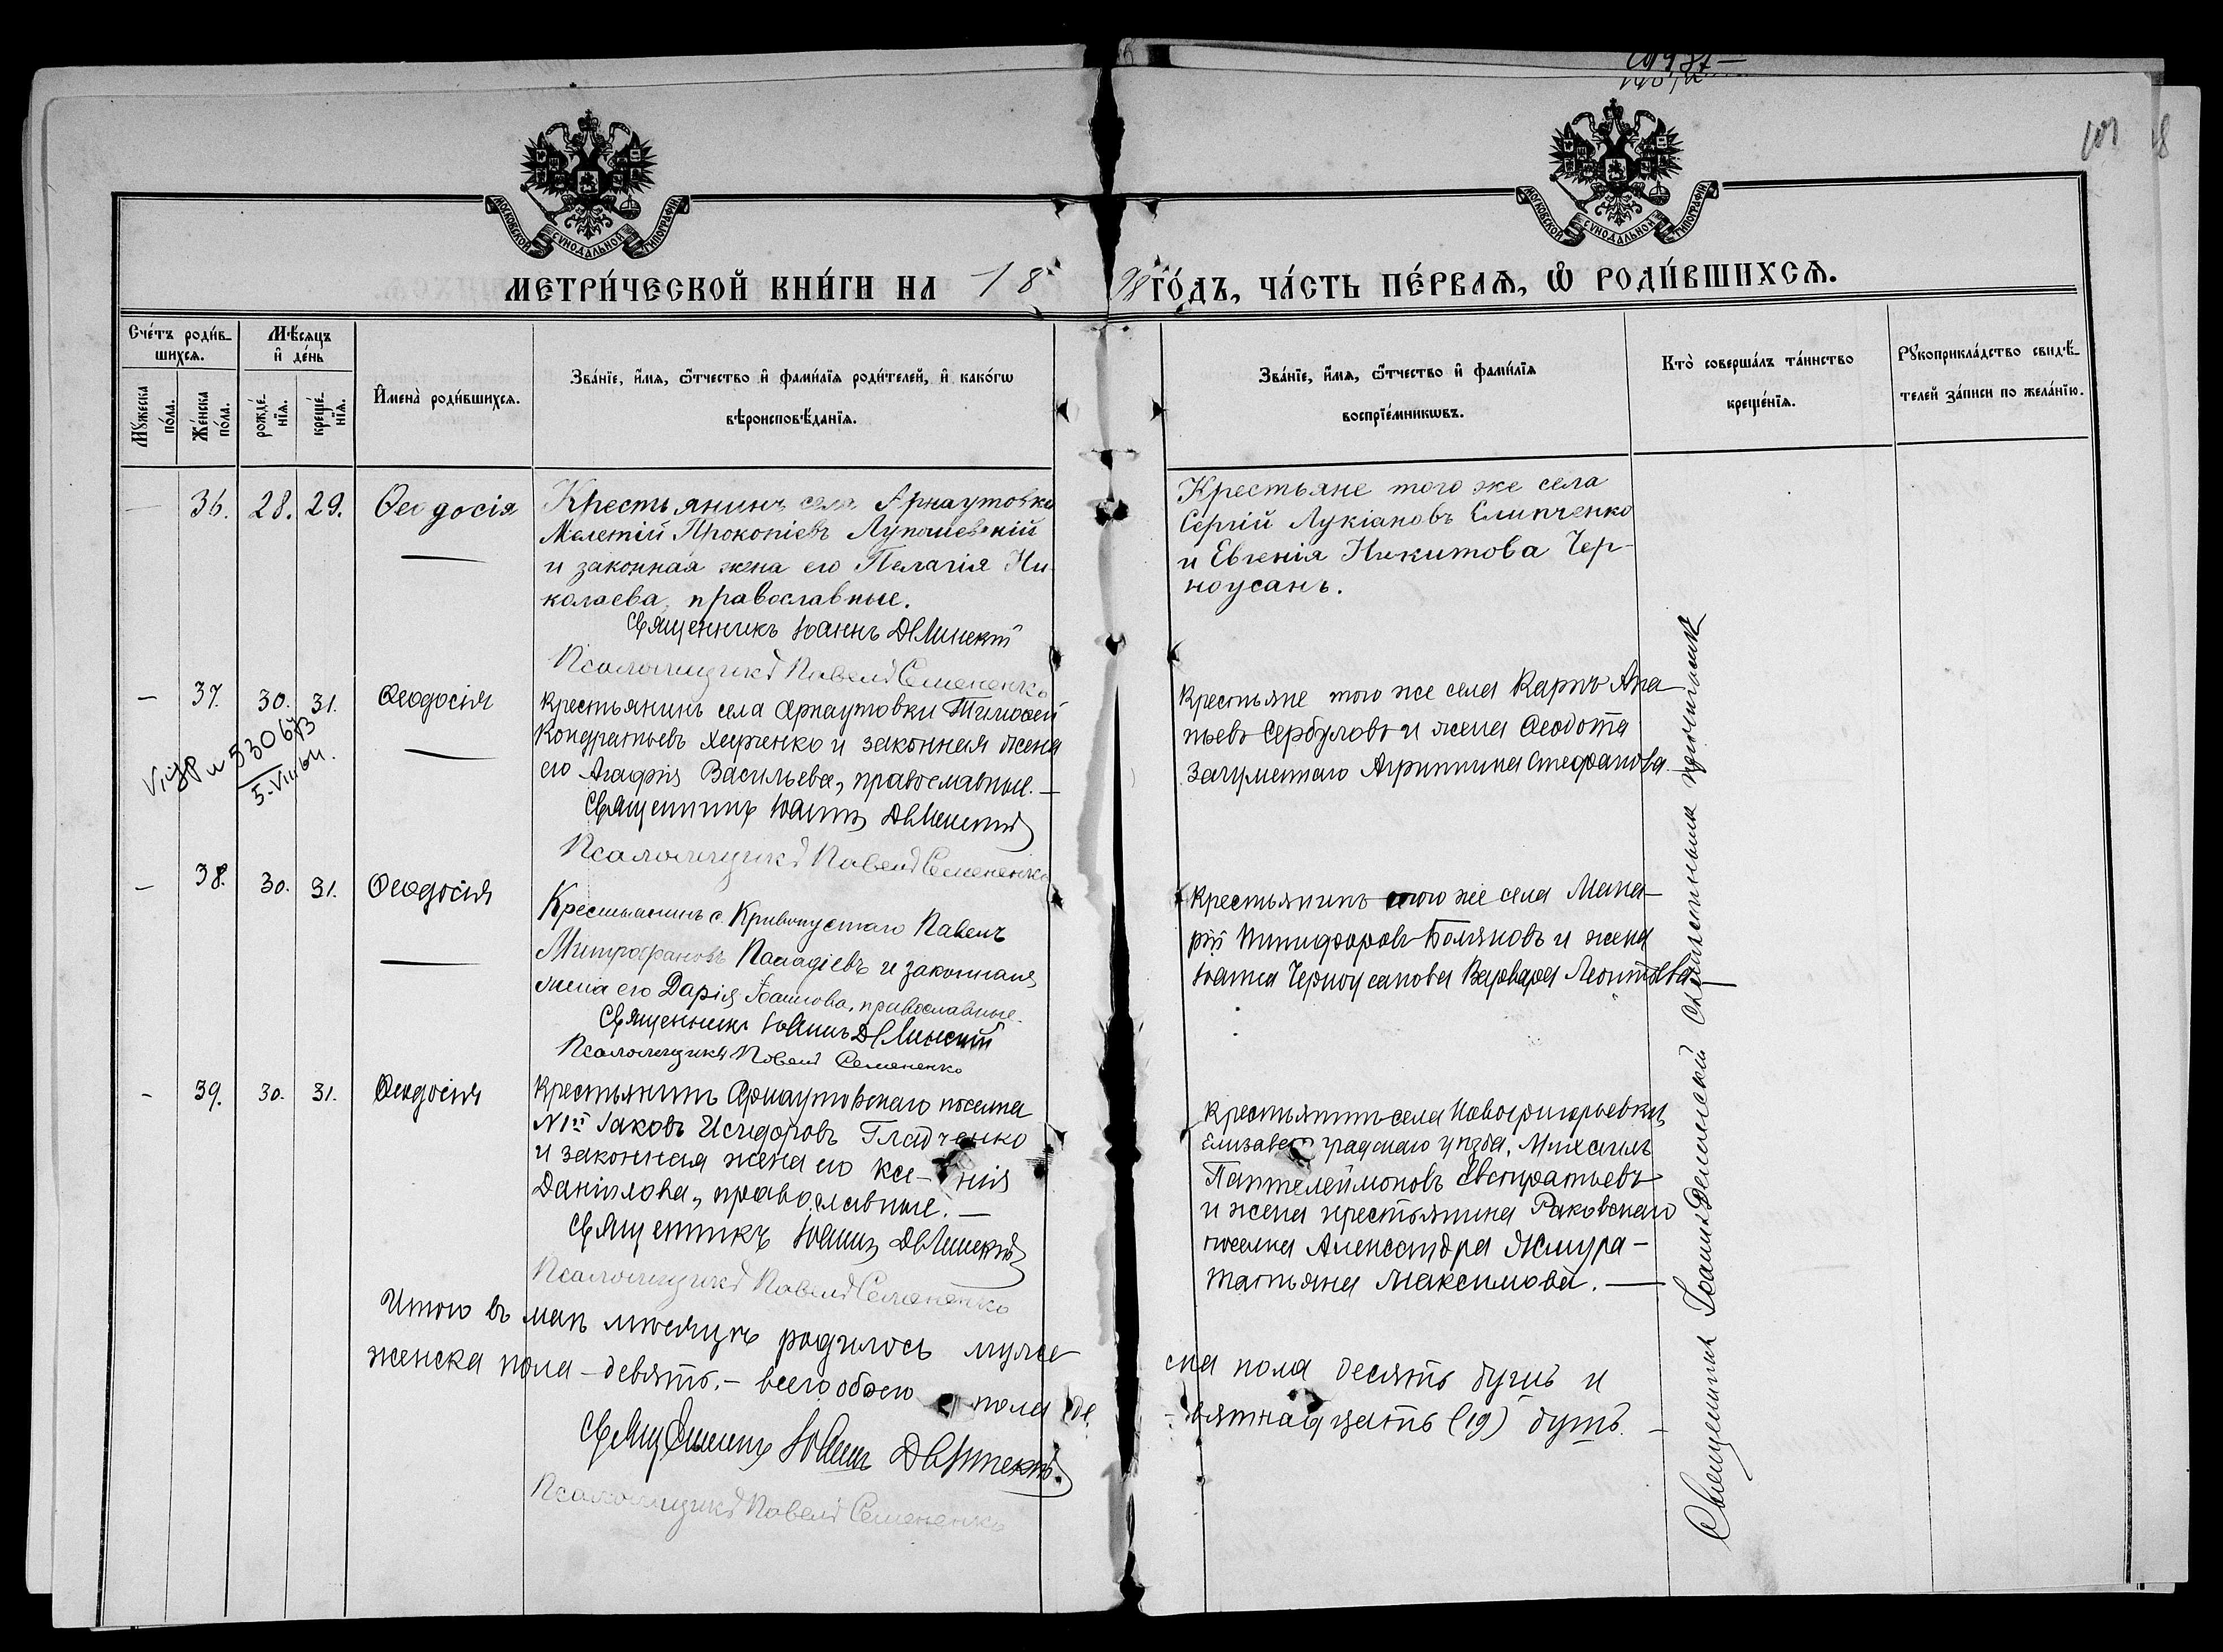 МОСКОВСКОЙ СѴНОДАЛЬНОЙ ТИПОГРАФІИ
МОСКОВСКОЙ СѴНОДАЛЬНОЙ ТИПОГРАФІИ
МЕТРИ́ЧЕСКОЙ КНИ́ГИ НА 18 98 ГО́ДЪ, ЧА́СТЬ ПЕ́РВАѦ, Ѡ҆ РОДИ́ВШИХСѦ.
Сче́тъ роди́в-
шихсѧ.
Мѣ́сѧцъ
и҆ де́нь
Мꙋ́жеска
по́ла.
Же́нска
по́ла.
рожде́-
нїѧ.
креще́-
нїѧ.
И҆мена̀ роди́вшихсѧ.
Зва́нїе, и҆́мѧ, ѻ҆́тчество и҆ фами́лїѧ роди́телей, и҆ како́гѡ
вѣроисповѣ́данїѧ.
Зва́нїе, и҆́мѧ, ѻ҆́тчество и҆ фами́лїѧ
воспрїе́мникѡвъ.
Кто̀ соверша́лъ та́инство
креще́нїѧ.
Рꙋкоприкла́дство свидѣ́-
телей за́писи по жела́нїю.
— 36. 28. 29. Ѳеодосія
Крестьянинъ села Арнаутовки
Мелетій Прокопіевъ Лупошевскій
и законная жена его Пелагія Ни-
колаева, православные.
Священникъ Іоаннъ Демінскій
Псаломщикъ Павелъ Семененко
Крестьяне того же села
Сергій Лукіановъ Слипченко
и Евгенія Никитова Чер-
ноусанъ.
— 37. 30. 31. Ѳеодосія
530673
5-VIII 64.
Крестьянинъ села Арнаутовки Тимоѳей
Кондратьевъ Харченко и законная жена
его Агафія Васильева, православные. —
Священникъ Іоаннъ Демінскій
Псаломщикъ Павелъ Семененко
Крестьяне того же села Карпъ Ага-
пьевъ Сербуловъ и жена Ѳеодота
Агриппина Стефанова.
— 38. 30. 31. Ѳеодосія
Крестьянинъ с. Кривопустаго Павелъ
Митрофановъ Паладіевъ и законная
жена его Дарія Іоаннова, православные.
Священникъ Іоаннъ Демінскій
Псаломщикъ Павелъ Семененко
Крестьянинъ того же села Мака-
рій Никифоровъ Боляновъ и жена
Іоанна Черноусанова Варвара Леонтьева —
- 39. 30. 31. Ѳеодосія
Крестьянинъ Арнаутовскаго поселка
№1й Іаковъ Исидоровъ Гладченко
и законная жена его Ксе- нія
Даніилова, православные. —
Священникъ Іоаннъ Демінскій
Псаломщикъ Павелъ Семененко
Крестьянинъ села Новогригорьевки,
Елизаветградскаго уѣзда, Михаилъ
Пантелеймоновъ Евстратьевъ
и жена крестьянина Раковскаго
поселка Александра Жмура -
Татьяна Максимова. —
Итого въ маѣ мѣсяцѣ родилось муже
ска пола десять душъ и
женска пола - девять. - всего обоего пола де-
вятнадцать (19) душъ. -
Священникъ Іоаннъ Демінскій
Псаломщикъ Павелъ Семененко